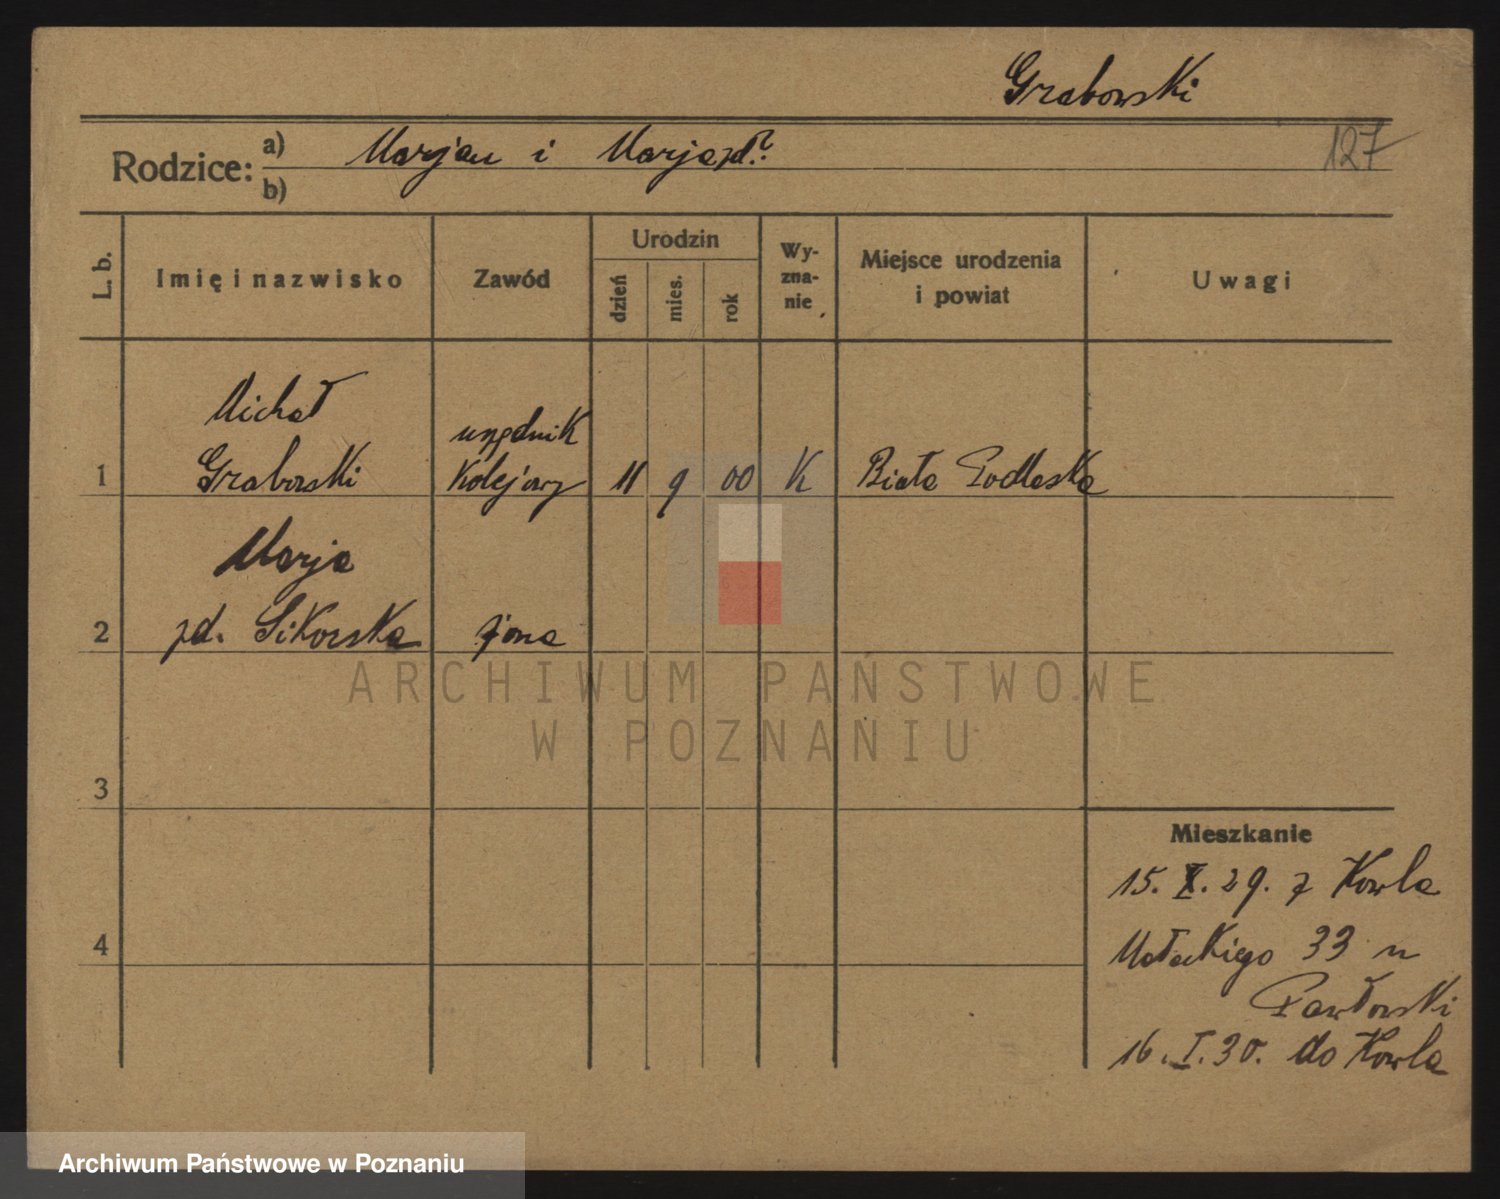 Grabowski
127
Rodzice: a) Marjan i Marja zd. ?
b)
L. b. Imię i nazwisko Zawód Urodzin dzień mies. rok Wy-zna-nie Miejsce urodzenia i powiat Uwagi
Michał
urzędnik
1 Grabowski kolejowy 11 9 00 K Biała Podlaska
Marja
2 zd. Sikorska żona
3
Mieszkanie
15. X. 29. z Kowla
4 Małeckiego 33 u
Pawłowski
16. I. 30. do Kowla
ARCHIWUM PAŃSTWOWE
W POZNANIU
Archiwum Państwowe w Poznaniu